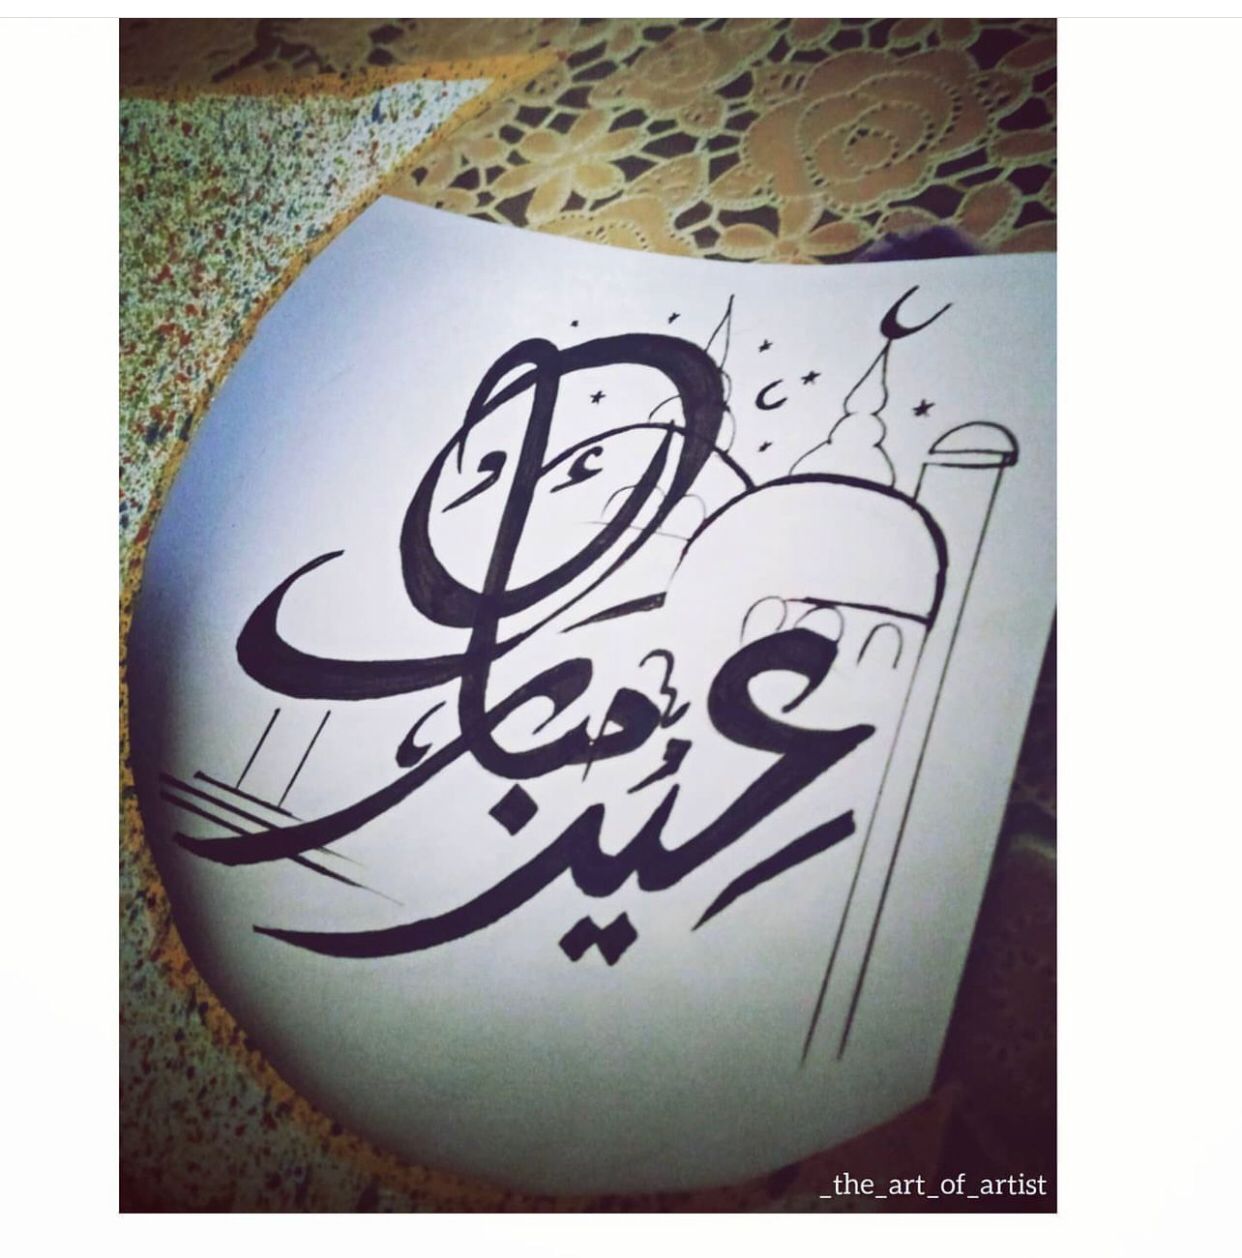 عيد
مبارك
_the_art_of_artist